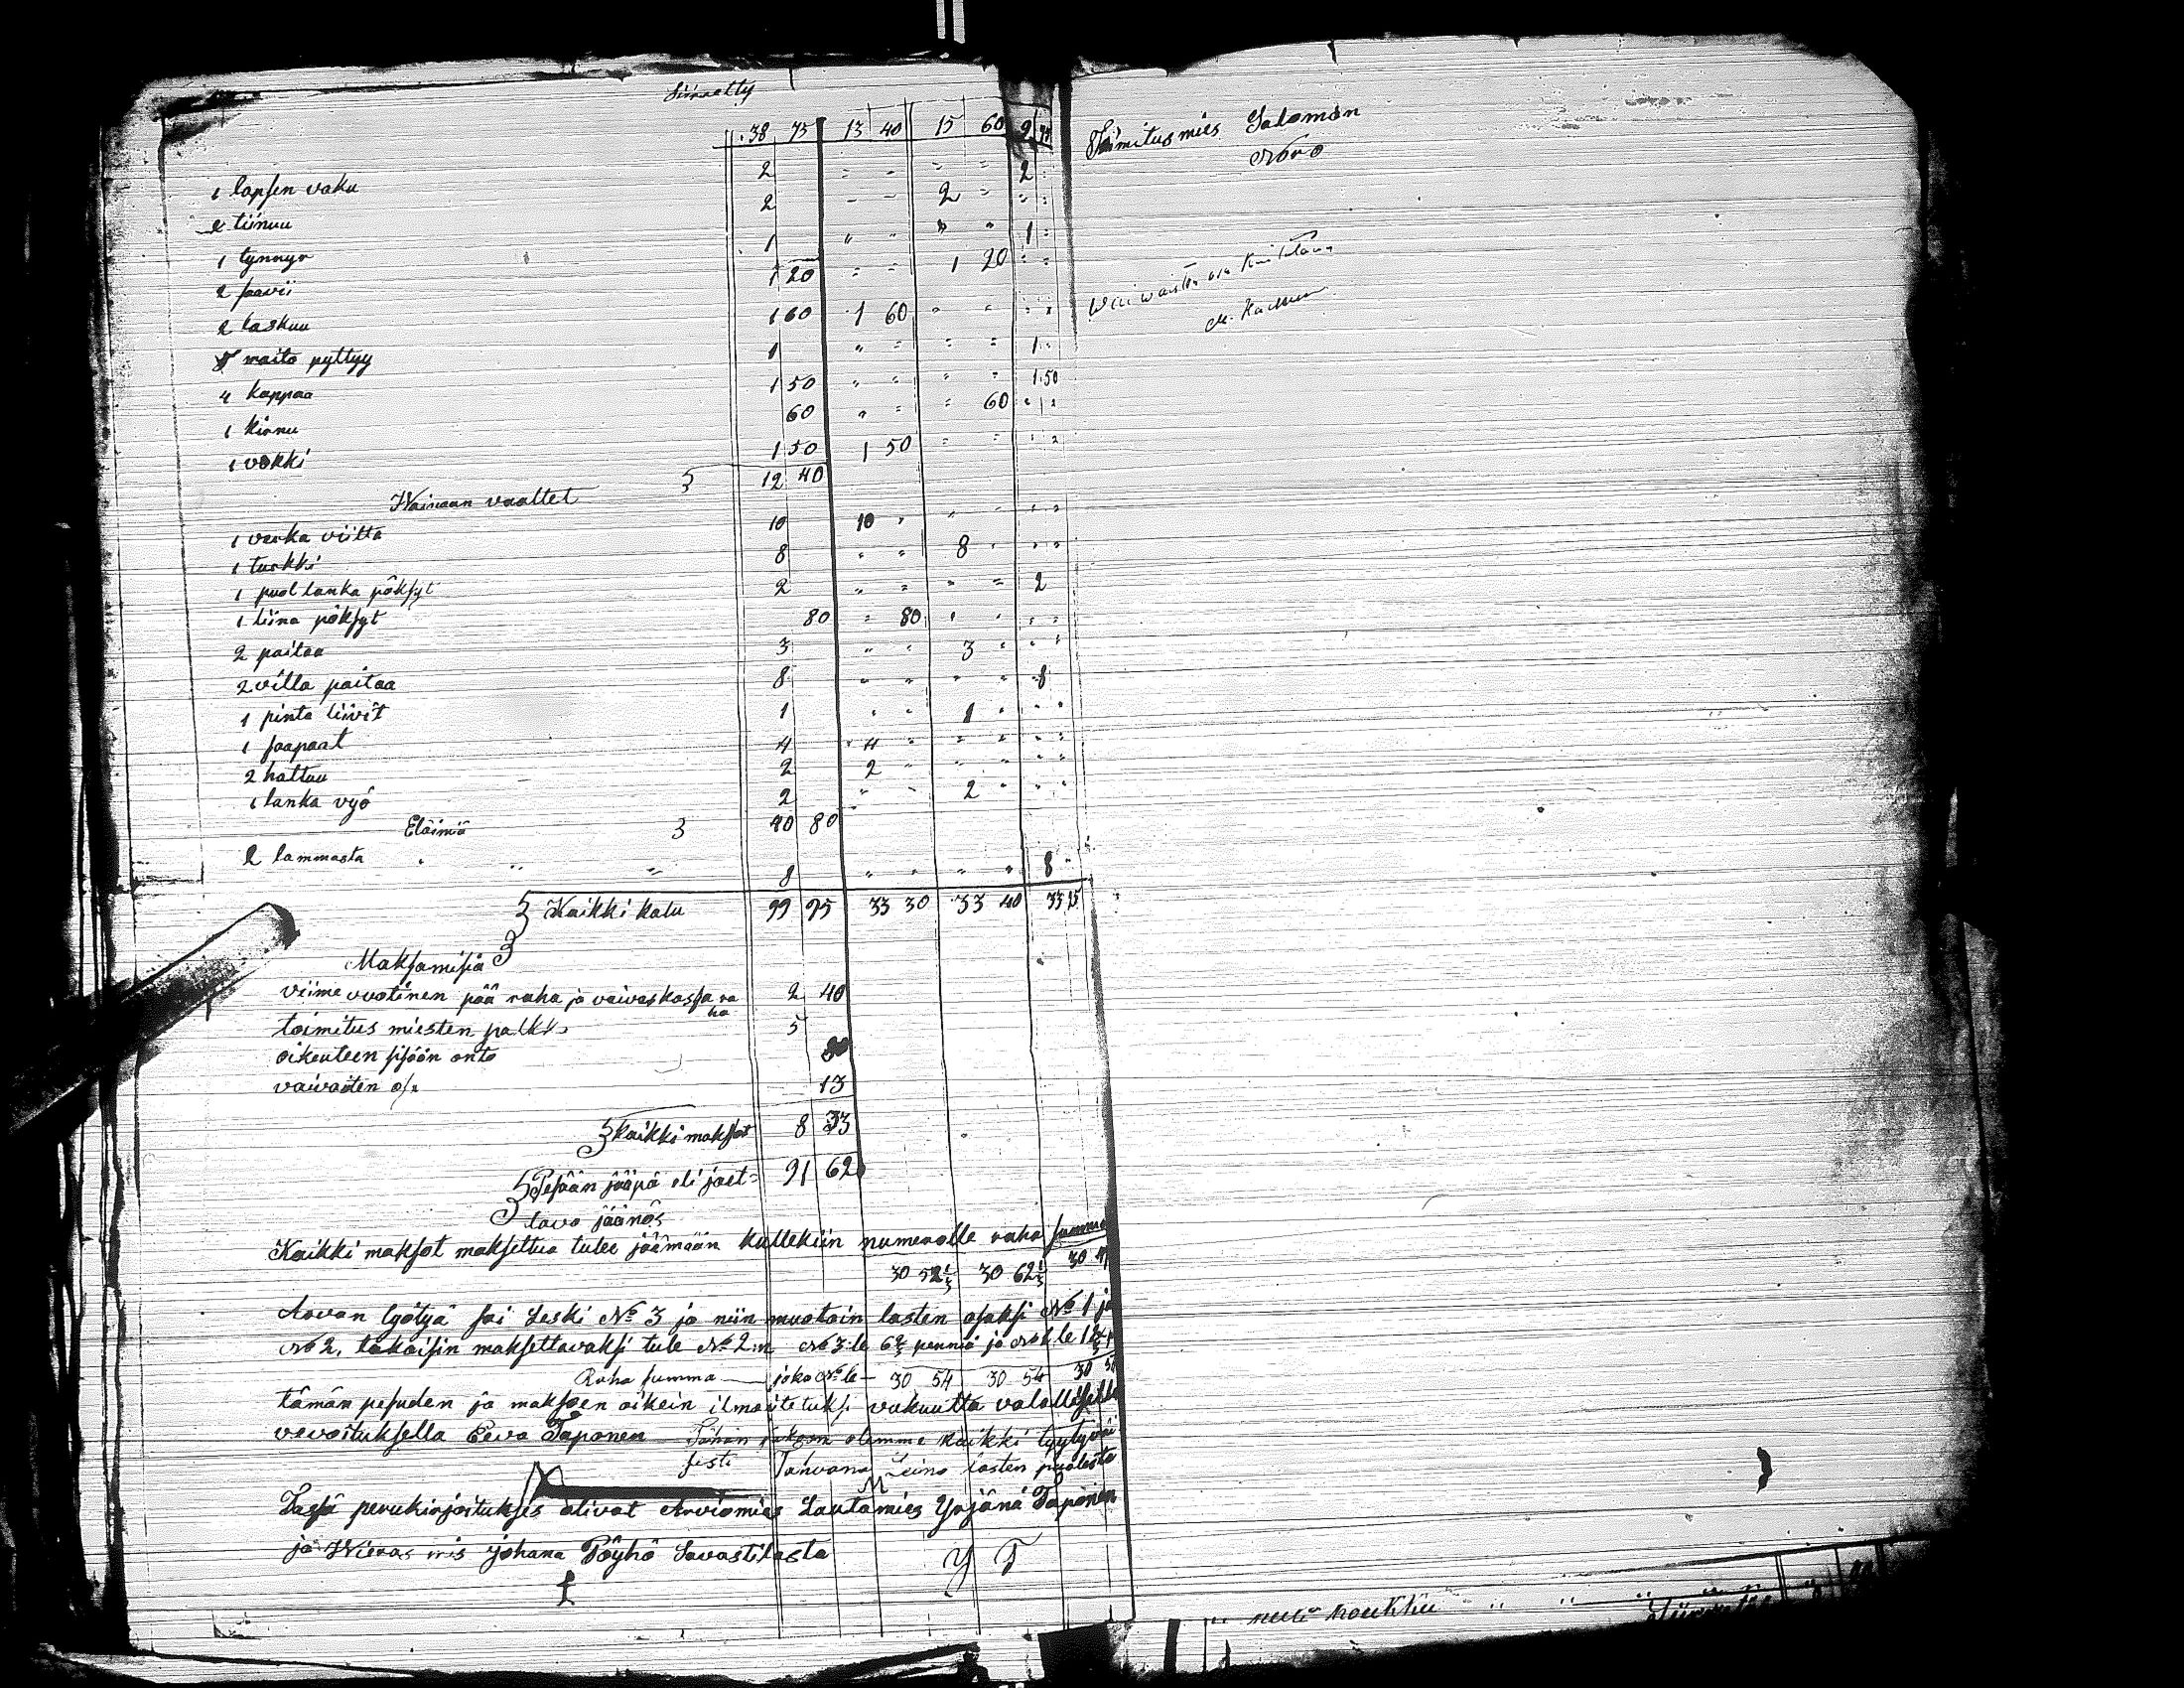 Siirretty
38 75 13 40 15 60 9 75
1 lapsen vaku 2 = - = = 2 =
2 tiinuu 2 - - 2 = = =
1 tynnyr 1 " " " " 1 =
2 saavii 1 20 = = 1 20 = =
2 laskuu 1 60 1 60 " " = =
5 maito pyttyy 1 " = = = 1 =
4 kappaa 1 50 " = " = 1 50
1 kirnu 60 " = = 60 " "
1 vokki 1 50 1 50 = = " "
12 40
Wainaan vaattet
1 verka viitta 10 10 " " " " "
1 turkki 8 " " 8 " " "
1 puol lanka pöksyt 2 " = " = 2
1 liina pöksyt 80 = 80 " " " "
2 paitaa 3 " " 3 " " "
2 villa paitaa 8 " " " " 8
1 pinta liivit 1 " " 1 " " "
1 saapaat 4 4 " = " " "
2 hattuu 2 2 " " " " "
1 lanka vyö 2 " " 2 " " "
Eläimiä 40 80
2 lammasta " " " 8 " " " " 8 "
Kaikki kalu 99 95 33 30 33 40 33 25
Maksamisia
viime vuotinen pää raha ja vaivaskassa ra
ha 2 40
toimitus miesten palkk 5
oikeuteen sisään anto 80
vaivasten os: 13
Kaikki maksot 8 33
Pesään jääpä eli jaet= 91 62
tava jäänös
Kaikki maksot maksettua tulee jäämään kullekiin numerolle raha summa
30 52⅓ 30 62⅓ 30 47
Arvan lyötyä sai Leski No 3 ja niin muotoin lasten osaksi No 1 ja
No 2, takaisin maksettavaksi tule No 2:n No 3:le 6⅔ penniä ja No 1 le 1⅔ p
Raha summa — joka No le — 30 54 30 54 30 54
tämän pesuden ja maksoen oikein ilmoitetuksi vakuutta valallisella
velvoituksella Eeva Taponen Tähän jakoon olemme kaikki tyytyväi
sesti Tahvana Leino lasten puolesta
Tässä perukirjoitukses olivat Arviomies Lautamies Yrjänä Taponen
ja Wieras mis Johana Pöyhö Savastilasta Y T
Toimitus mies Salomon
Noro
Waiwaisten osa Kuitataan
M. Kackur
" nuti koukkuu " " " "